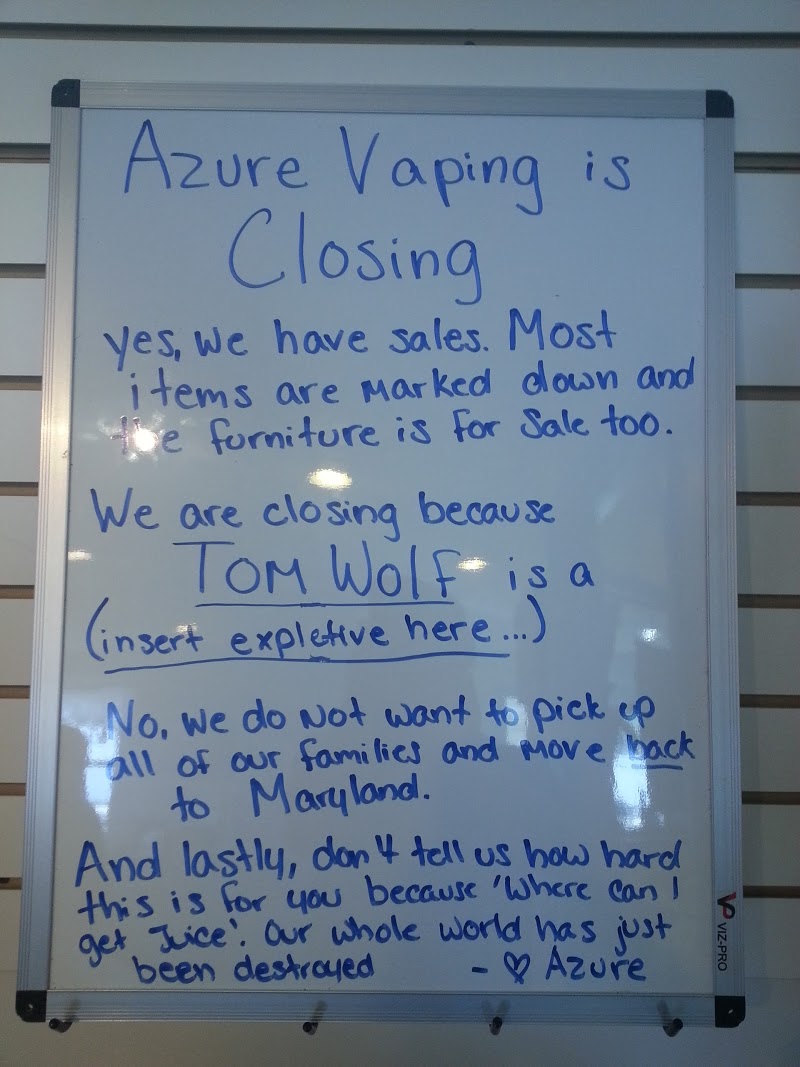 Azure Vaping is
Closing
yes, we have sales. Most
items are marked down and
the furniture is for sale too.
We are closing because
TOM WOLF is a
(insert expletive here...)
No, we do not want to pick up
all of our families and move back
to Maryland.
And lastly, don't tell us how hard
this is for you because 'Where can I
get Juice'. Our whole world has just
been destroyed - ♡ Azure
VP VIZ-PRO